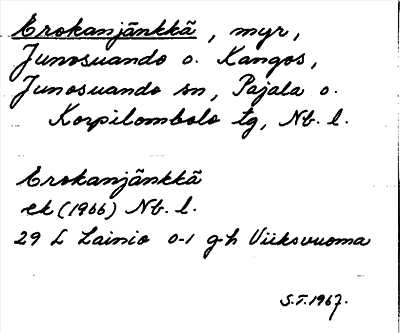 Erokanjänkkä, myr,
Junosuando o. Kangos,
Junosuando sn, Pajala o.
Korpilombolo tg, Nb. l.
Erokanjänkkä
ek (1966) Nb. l.
29 L Lainio 0-1 g-h Viiksvuoma
S.T. 1967.